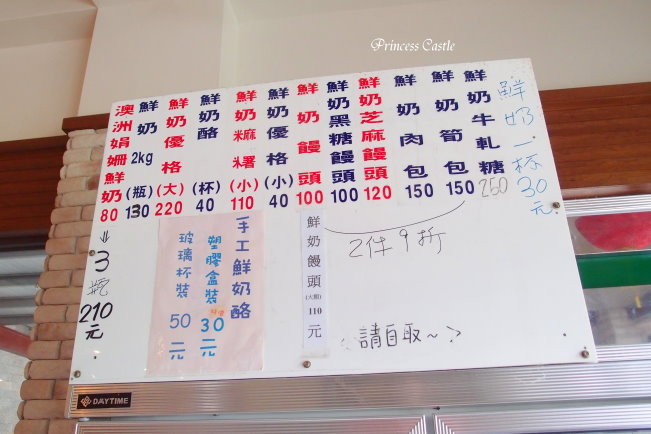 Princess Castle
鮮奶一杯30元
鮮奶牛軋糖 250
鮮奶筍包 150
鮮奶肉包 150
鮮奶芝麻饅頭 120
鮮奶黑糖饅頭 100
鮮奶饅頭 100
鮮奶優格(小) 40
鮮奶麻糬(小) 110
鮮奶酪(杯) 40
鮮奶優格(大) 220
鮮奶2kg(瓶) 130
澳洲娟姍鮮奶 80
↓3瓶210元
2件9折
鮮奶饅頭(大顆)110元
手工鮮奶酪
塑膠盒裝 30元
玻璃杯裝 50元
請自取~
DAYTIME